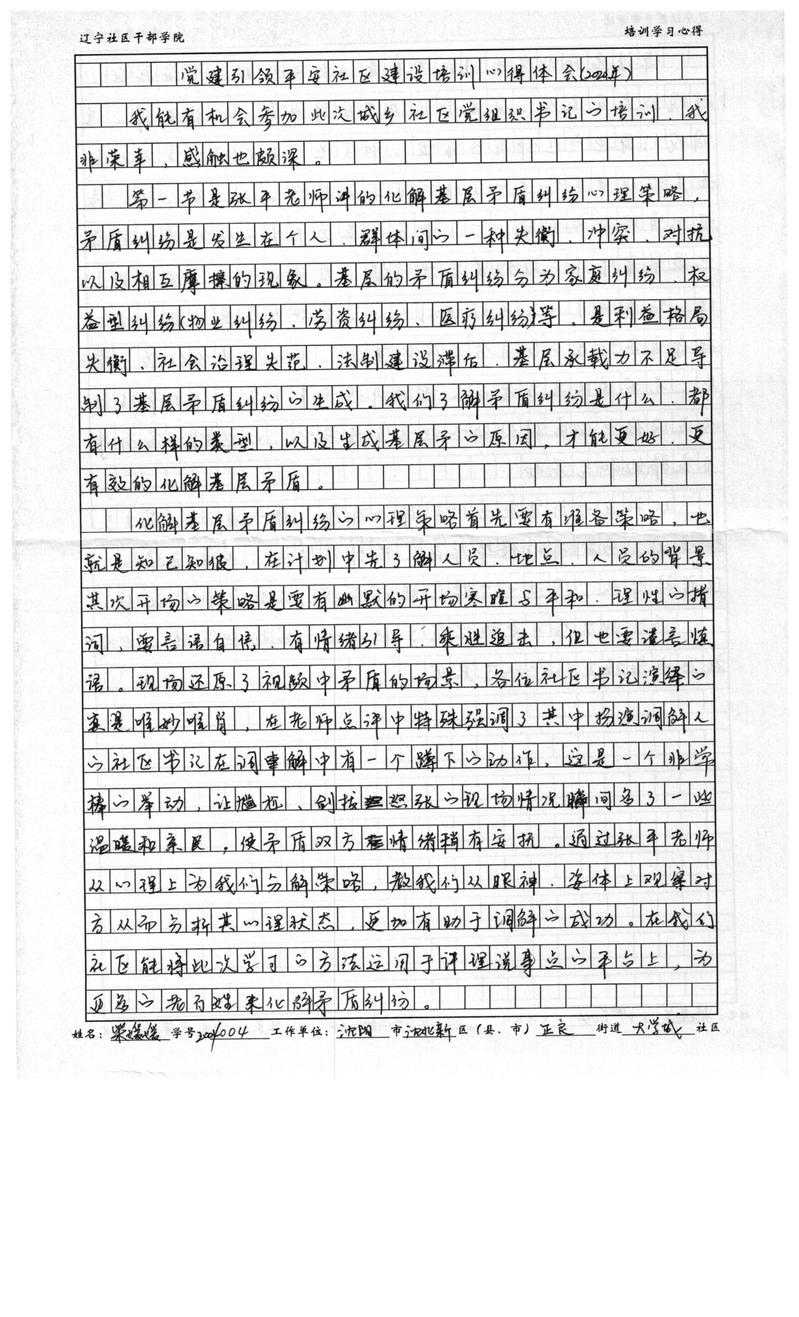 辽宁社区干部学院 培训学习心得
党建引领平安社区建设培训心得体会(2020年)
我能有机会参加此次城乡社区党组织书记的培训，我
非荣幸，感触也颇深。
第一节是张平老师讲的化解基层矛盾纠纷心理策略，
矛盾纠纷是发生在个人、群体间的一种失衡、冲突、对抗
以及相互摩擦的现象。基层的矛盾纠纷分为家庭纠纷、权
益型纠纷(物业纠纷、劳资纠纷、医疗纠纷)等，是利益格局
失衡、社会治理失范、法制建设滞后、基层承载力不足导
制了基层矛盾纠纷的生成。我们了解矛盾纠纷是什么，都
有什么样的类型，以及生成基层矛的原因，才能更好、更
有效的化解基层矛盾。
化解基层矛盾纠纷的心理策略首先要有准备策略，也
就是知己知彼，在计划中先了解人员、地点、人员的背景
其次开场的策略是要有幽默的开场寒暄与平和、理性的措
词，要言语自信，有情绪引导，乘胜追击，但也要谨言慎
语。现场还原了视频中矛盾的场景，各位社区书记演绎的
真是唯妙唯肖，在老师点评中特殊强调了其中扮演调解人
的社区书记在调解中有一个蹲下的动作，这是一个非学
的举动，让尴尬、剑拔张的现场情况瞬间多了一些
温暖和亲民，使矛盾双方情绪稍有安抚。通过张平老师
从心理上为我们分解策略，教我们从眼神、姿体上观察对
方从而分析其心理状态，更加有助于调解的成功。在我们
社区能将此次学习的方法运用于评理说事点的平台上，为
更多的老百姓来化解矛盾纠纷。
姓名：媛媛 学号004 工作单位：沈阳 市沈北新区（县、市）正良 街道 大学城 社区